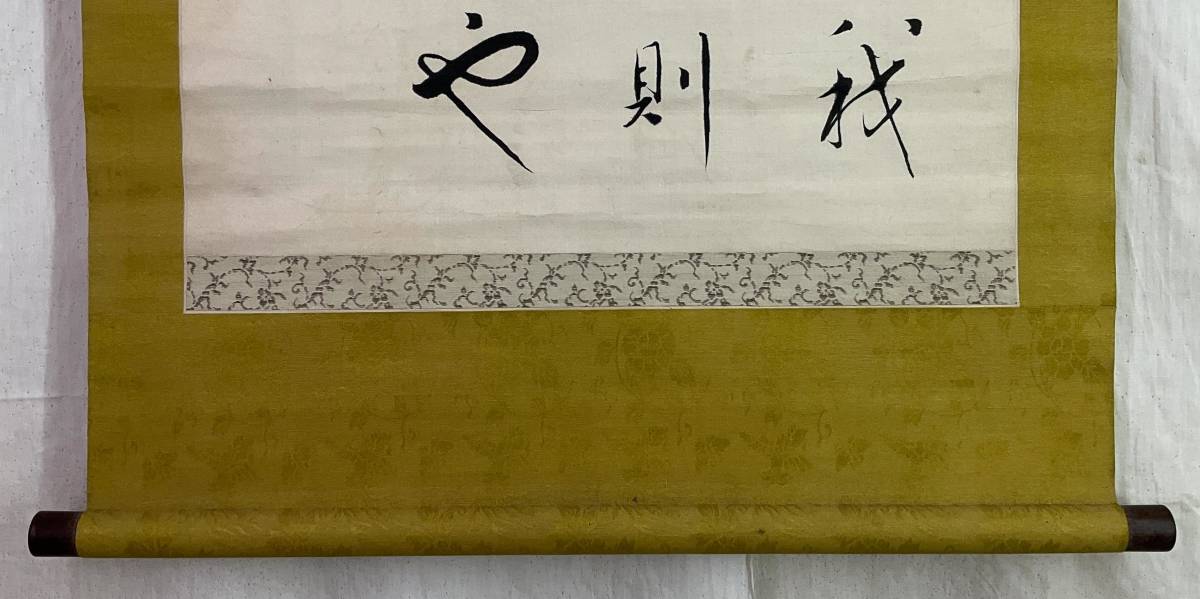 我
則
也